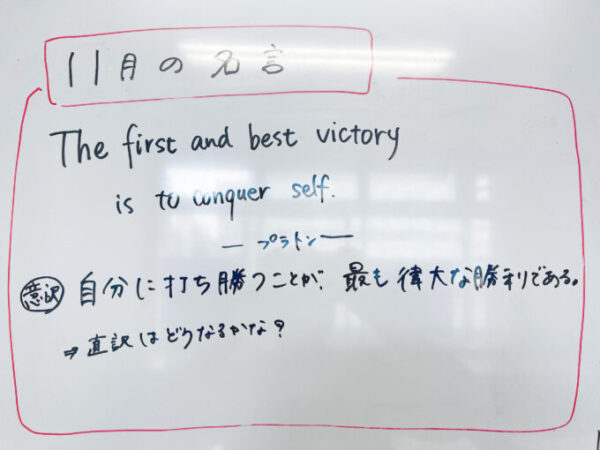 11月の名言
The first and best victory
is to conquer self.
― プラトン ―
意訳 自分に打ち勝つことが、最も偉大な勝利である。
⇒ 直訳はどうなるかな?